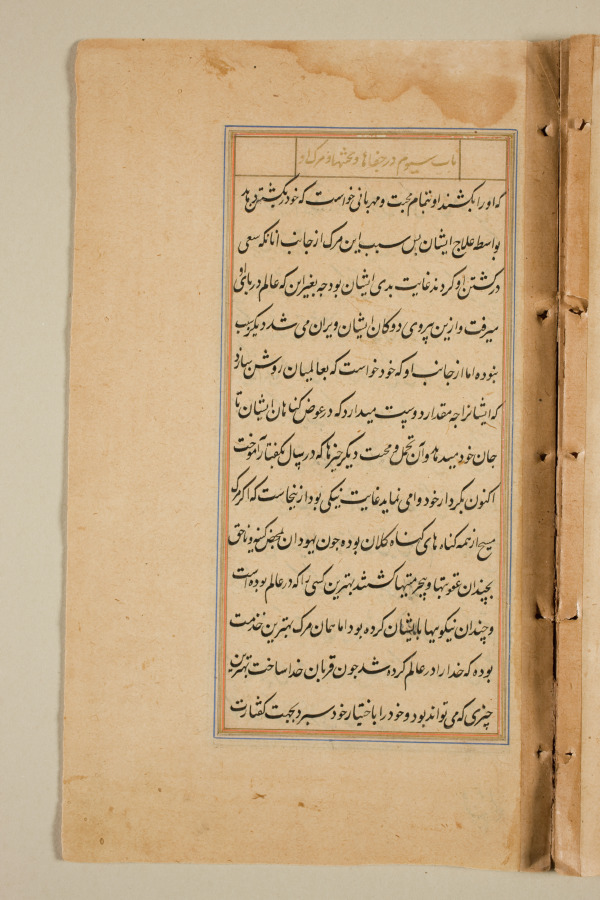 باب سیوم در جفاها و محنتها و مرک او
که او را بکشند او بتمام محبت و مهربانی خواست که خود را بکشتن دهد
بواسطه علاج ایشان پس سبب این مرک از جانب آنانکه سعی
در کشتن او کردند غایت بدی ایشان بود چه بغیر این که عالم در پای او
میرفت و ازین پیروی دوکان ایشان ویران می شد دیکر سبب
نبوده اما از جانب او که خود خواست که بعالمیان روشن سازد
که ایشانرا چه مقدار دوست میدارد که در عوض کناهان ایشان تا
جان خود میدهد و آن تحمل و محبت دیکر چیزها که در سال بکفتار آموخت
اکنون بکردار خود وامی نماید غایت نیکی بود از ینجاست که اکر مرک
مسیح از همه کناه های کناه کلان بوده چون یهودان بمحض کینه و ناحق
بچندان عقوبتها و بیحرمتیها کشتند بهترین کسی را که در عالم بوده است
و چندان نیکوییها با ایشان کرده بود اما همان مرک بهترین خدمت
بوده که خدا را در عالم کرده شد چون قربان خدا ساخت بهترین
چیزی که می تواند بود و خود را باختیار خود سپرد بجهت کفارت